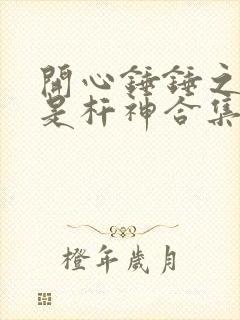 開心錘錘之
是杆神合集
橙年歲月